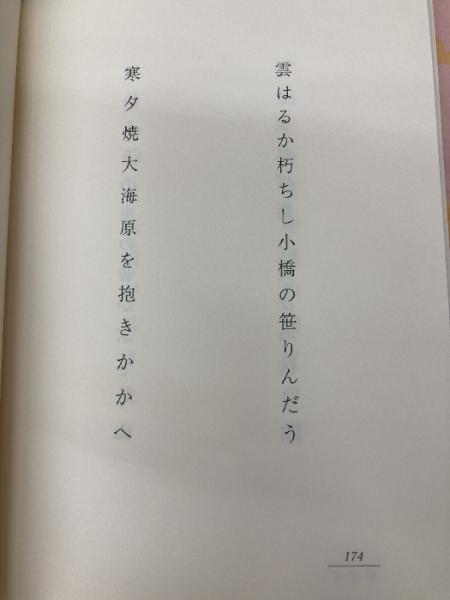 雲はるか朽ちし小橋の笹りんだう
寒夕焼大海原を抱きかかへ
174